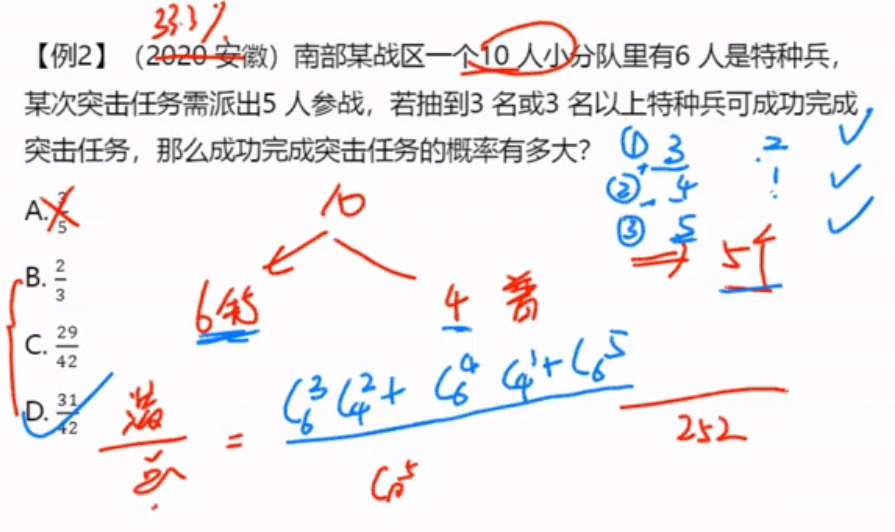 33.3%
【例2】（2020 安徽）南部某战区一个10 人小分队里有6 人是特种兵，
某次突击任务需派出5 人参战，若抽到3 名或3 名以上特种兵可成功完成
突击任务，那么成功完成突击任务的概率有多大？
① 3 2 ✓
+② 4 1 ✓
③ 5 ✓
⇒ 5个
A. 3/5
10
B. 2/3
6特 4 普
C. 29/42
D. 31/42
满/总 = C₆³C₄²+ C₆⁴ C₄¹+C₆⁵ / C₁₀⁵
252